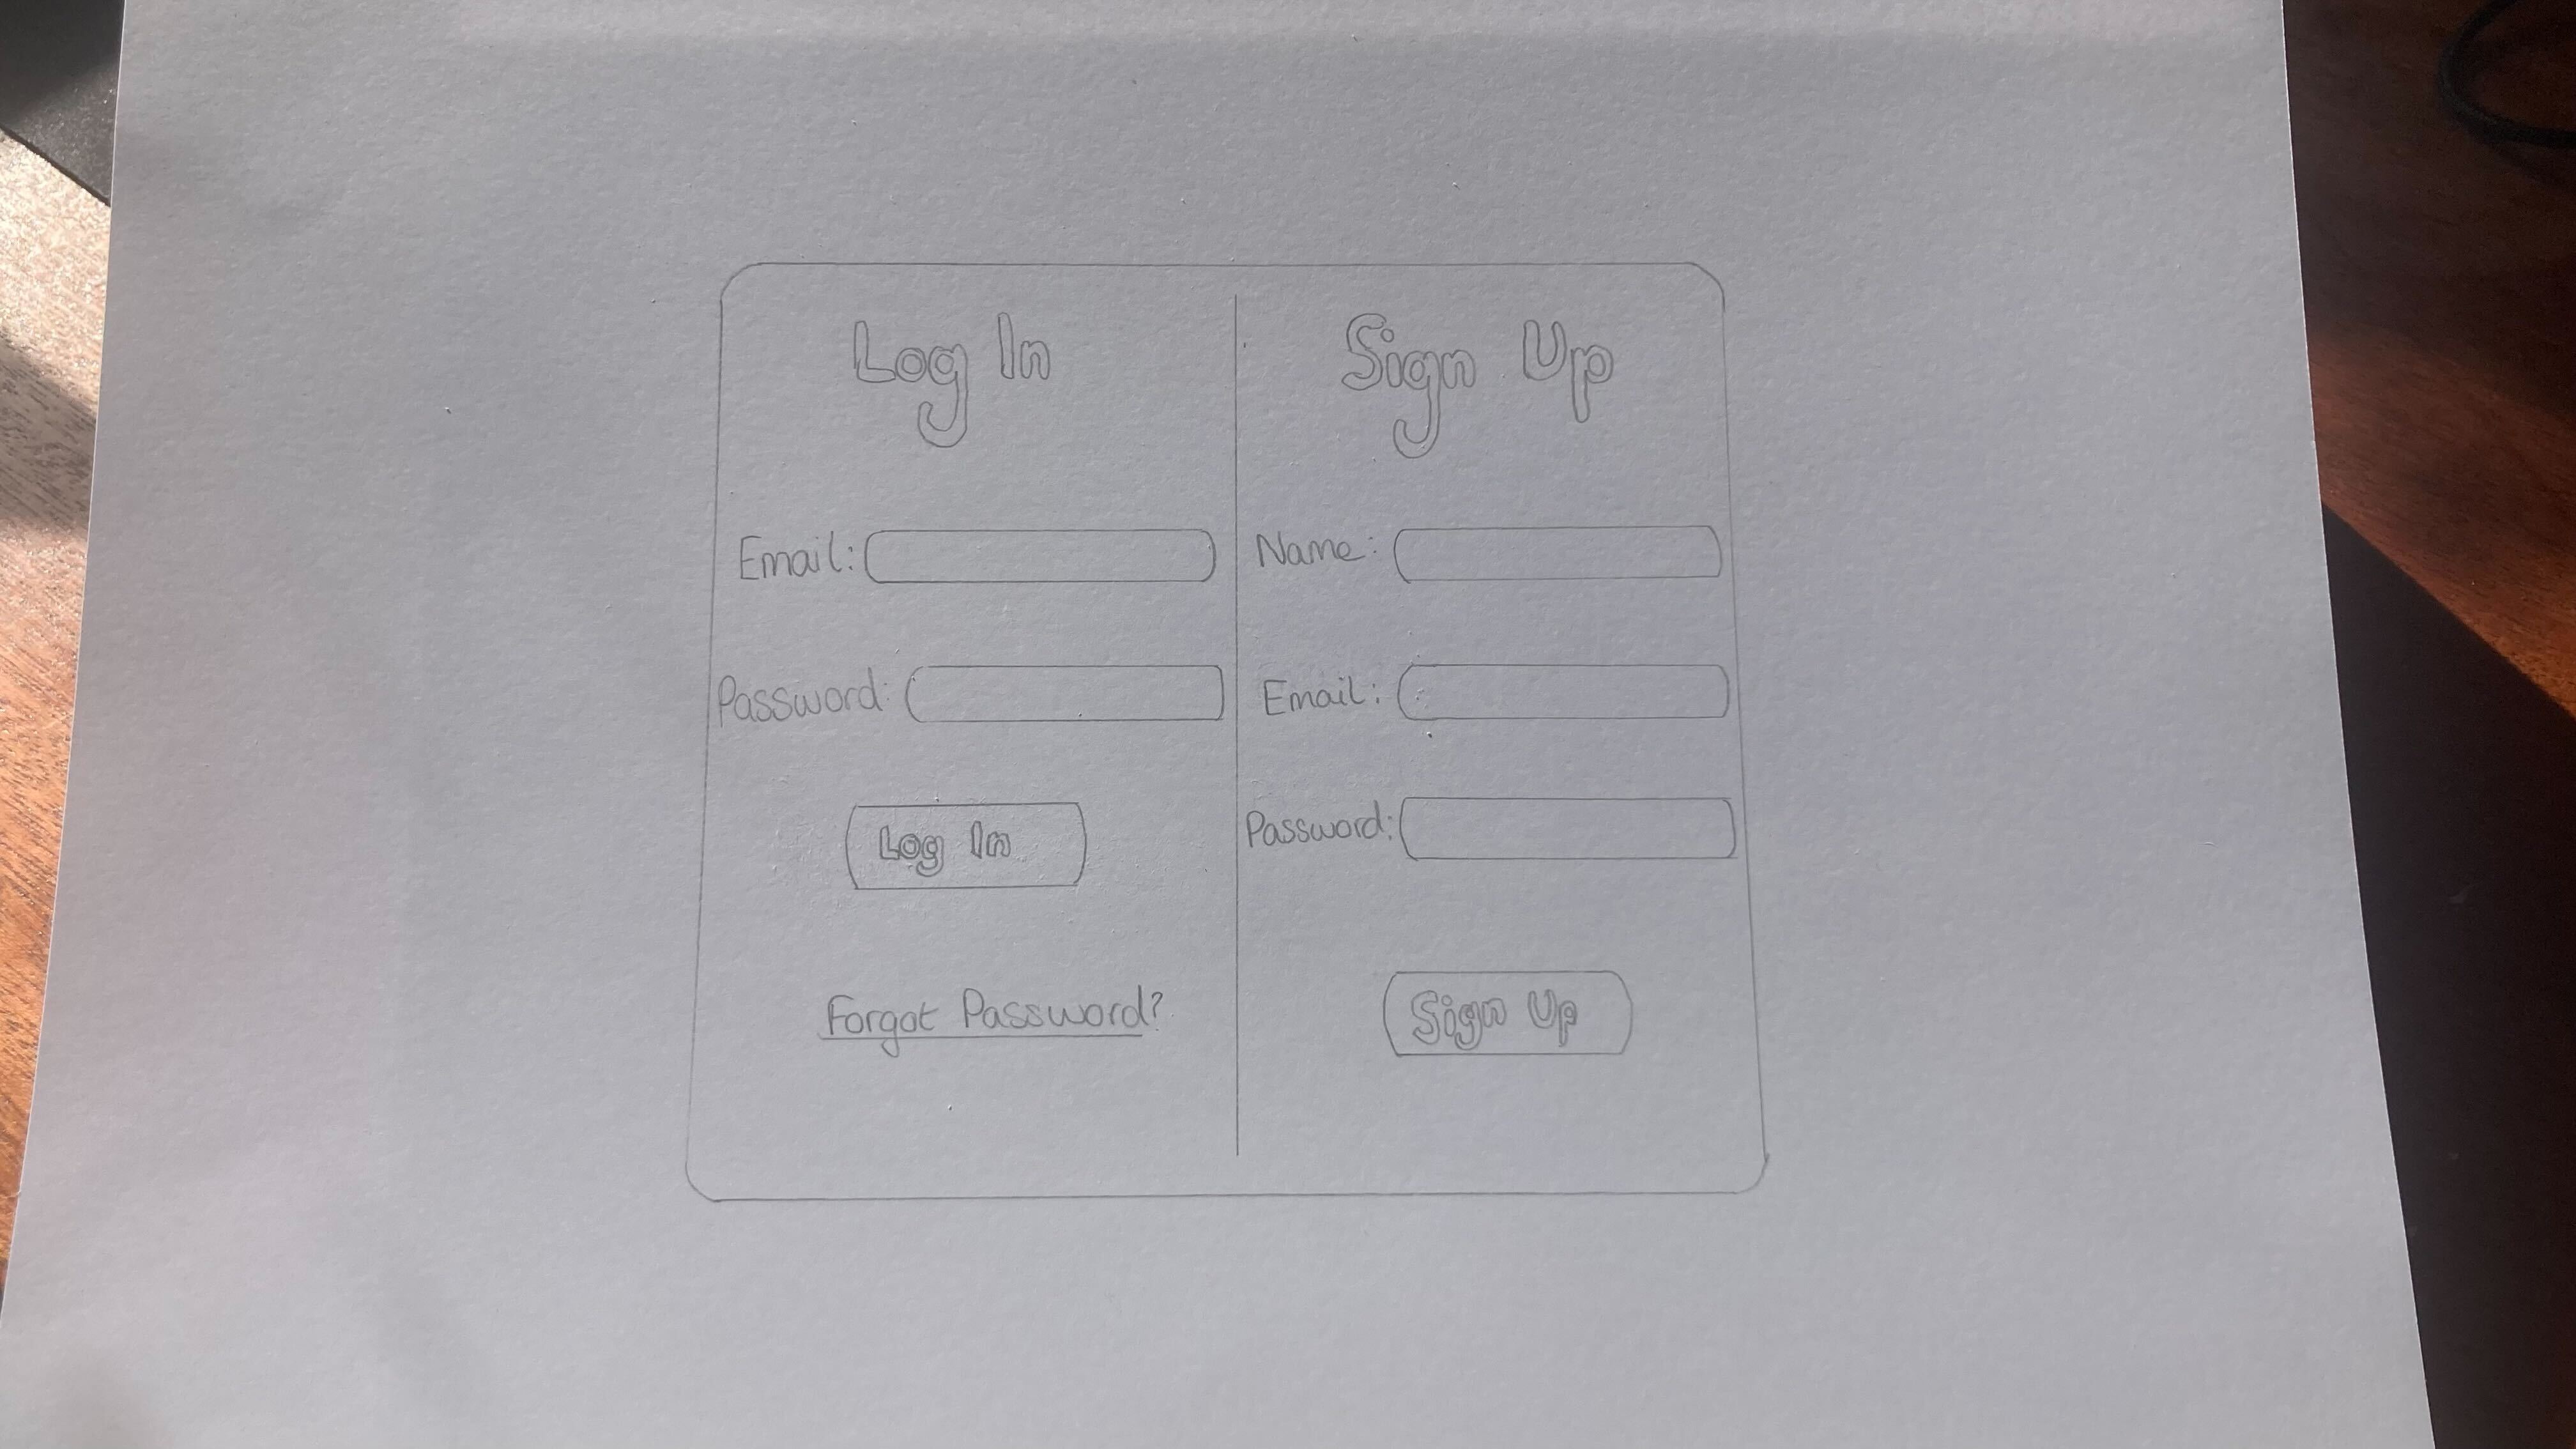 Log In
Email:
Password:
Log In
Forgot Password?
Sign Up
Name:
Email:
Password:
Sign Up